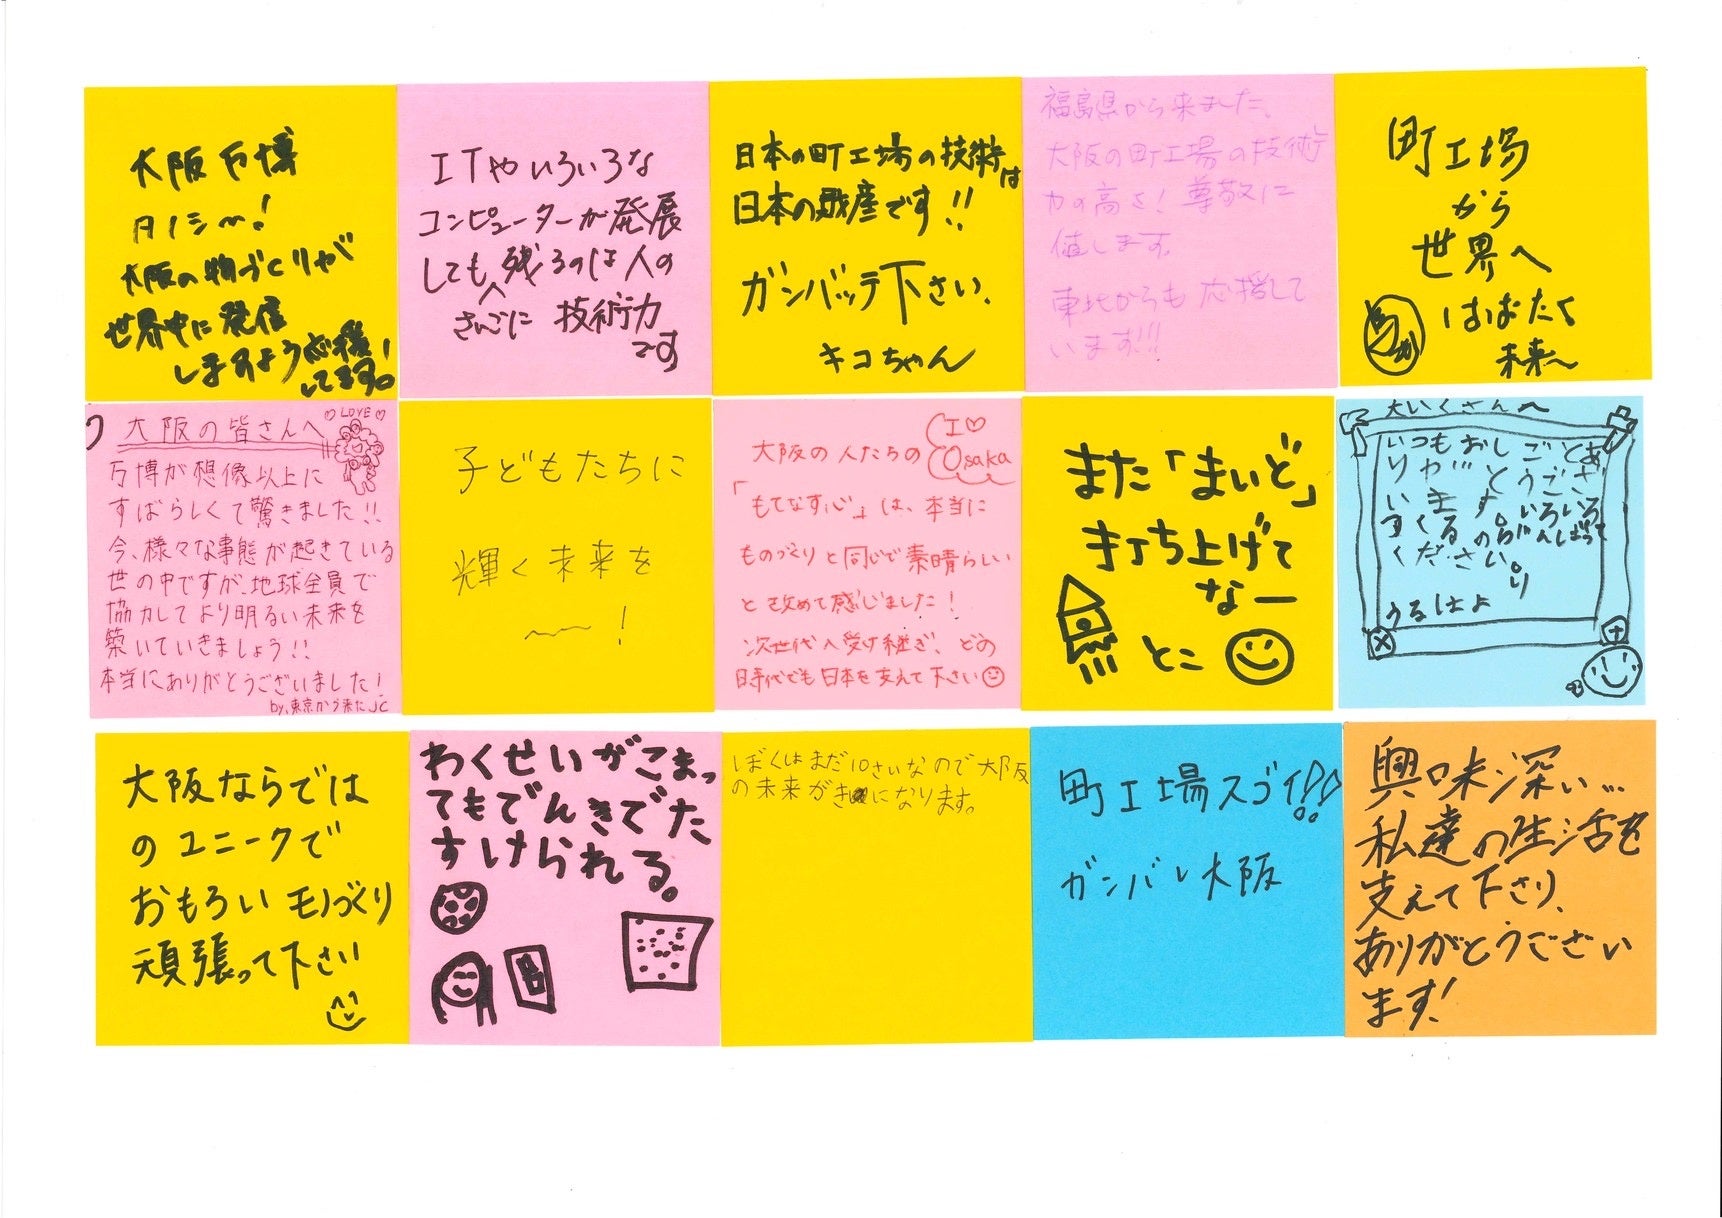 大阪万博
タノシ〜!
大阪の物づくりが
世界中に発信
しますよう応援
してます。!
ITやいろいろな
コンピューターが発展
しても残るのは人の
さいごに 技術力
です
日本の町工場の技術は
日本の財産です!!
ガンバッテ下さい、
キコちゃん
福島県から来ました、
大阪の町工場の技術
力の高さ!尊敬に
値します。
東北からも応援して
います!!!
町工場
から
世界へ
はばたく
未来へ
♡LOVE♡
大阪の皆さんへ
万博が想像以上に
すばらしくて驚きました!!
今、様々な事態が起きている
世の中ですが、地球全員で
協力してより明るい未来を
築いていきましょう!!
本当にありがとうございました!
by.東京から来たJC
子どもたちに
輝く未来を
〜〜!
I♡
Osaka
大阪の人たちの
「もてなす心」は、本当に
ものづくりと同じで素晴らしい
と改めて感じました!
次世代へ受け継ぎ、どの
時代でも日本を支えて下さい
また「まいど」
打ち上げて
なー
とこ
大いくさんへ
いつもおしごとあ
りがとうござ
います。いろいろ
つくるのがんばって
ください。
より
うるはよ
大阪ならでは
のユニークで
おもろいモノづくり
頑張って下さい
わくせいがこまっ
てもでんきでた
すけられる。
ぼくはまだ10さいなので大阪
の未来がきになります。
町工場スゴイ!!
ガンバレ大阪
興味深い…
私達の生活を
支えて下さり、
ありがとうござい
ます!